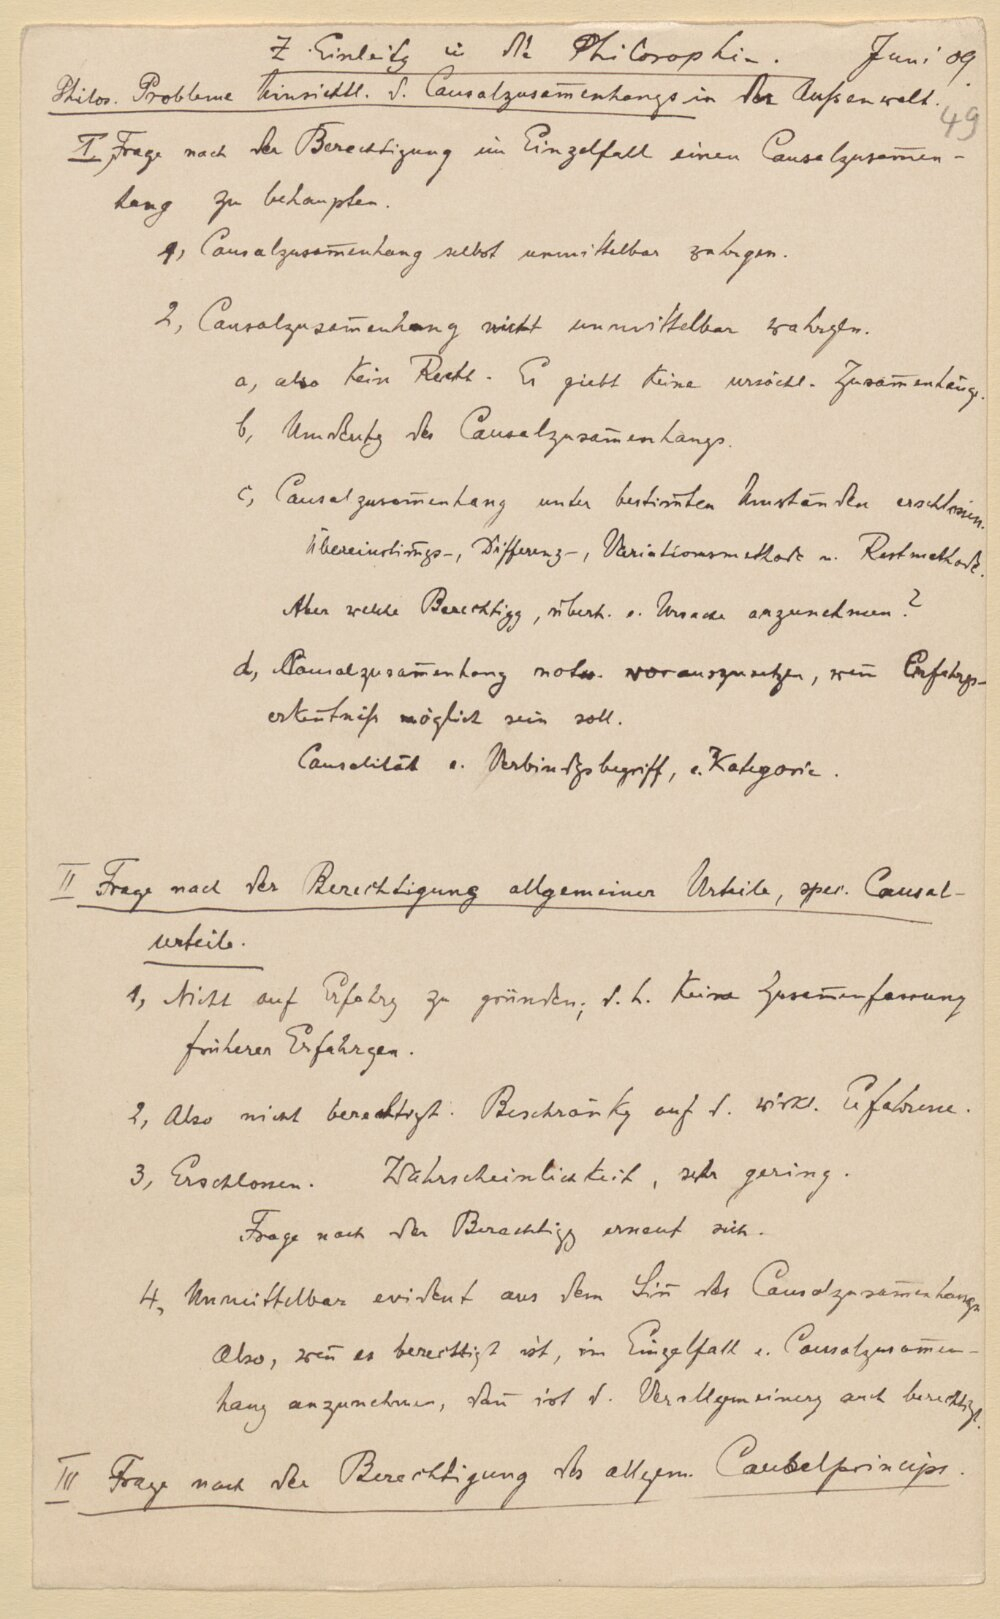 Z. Einleitg in die Philosophie. Juni 09
49
Philos. Probleme hinsichtl. d. Causalzusam̅enhangs in der Außenwelt.
I, Frage nach der Berechtigung im Einzelfall einen Causalzusam̅en-
hang zu behaupten.
1, Causalzusam̅enhang selbst unmittelbar wahrgen.
2, Causalzusam̅enhang nicht unmittelbar wahrgen.
a, also kein Recht. Es giebt keine ursächl. Zusam̅enhänge.
b, Umdeutg des Causalzusam̅enhangs.
c, Causalzusam̅enhang unter bestim̅ten Umständen erschlossen.
Übereinstim̅gs-, Differenz-, Variationsmethode u. Restmethode.
Aber welche Berechtigg, überh. e. Ursache anzunehmen?
d, Causalzusam̅enhang notw. vorauszusetzen, wen̅ Erfahrgs-
erken̅tniß möglich sein soll.
Causalität e. Verbindgsbegriff, e. Kategorie.
II Frage nach der Berechtigung allgemeiner Urteile, spec. Causal-
urteile.
1, Nicht auf Erfahrg zu gründen; d. h. keine Zusam̅enfassung
früherer Erfahrgen.
2, Also nicht berechtigt. Beschränkg auf d. wirkl. Erfahrene.
3, Erschlossen. Wahrscheinlichkeit, sehr gering.
Frage nach der Berechtigg erneut sich.
4, Unmittelbar evident aus dem Sin̅ des Causalzusam̅enhangs
Also, wen̅ es berechtigt ist, im Einzelfall e. Causalzusam̅en-
hang anzunehmen, dan̅ ist d. Verallgemeinerg auch berechtigt.
III Frage nach der Berechtigung des allgem. Causalprincips.